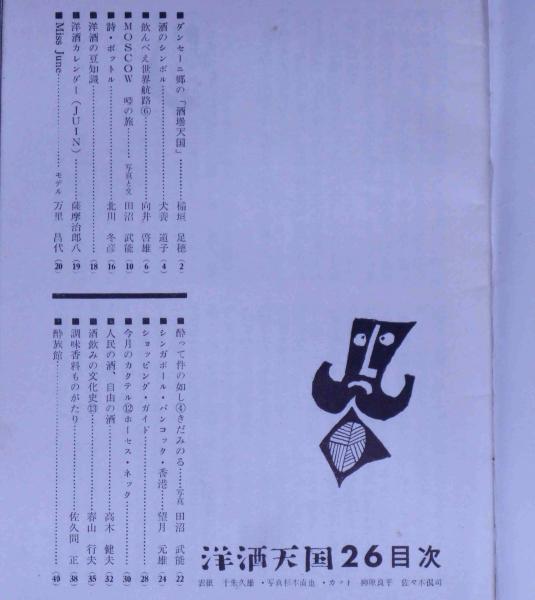 ■ ダンセーニ郷の「酒壜天国」………稲垣 足穂(2)
■ 酒のシンボル………犬養 道子(4)
■ 飲んべえ世界航路⑥………向井 啓雄(6)
■ MOSCOW 啞の旅………写真と文 田沼 武能(10)
■ 詩・ボットル………北川 冬彦(16)
■ 洋酒の豆知識………(18)
■ 洋酒カレンダー(JUIN)………薩摩治郎八(19)
■ Miss June………モデル 万里 昌代(20)
■ 酔って件の如し④きだみのる……写真 田沼 武能(22)
■ シンガポール・バンコック・香港……望月 元雄(24)
■ ショッピング・ガイド………(28)
■ 今月のカクテル⑫ホーセス・ネック………(30)
■ 人民の酒、自由の酒………高木 健夫(32)
■ 酒飲みの文化史⑬………春山 行夫(35)
■ 調味香料ものがたり………佐久間 正(38)
■ 酔族館………(40)
洋酒天国26目次
表紙 千朱久雄・写真杉木直也・カット 柳原良平 佐々木侃司